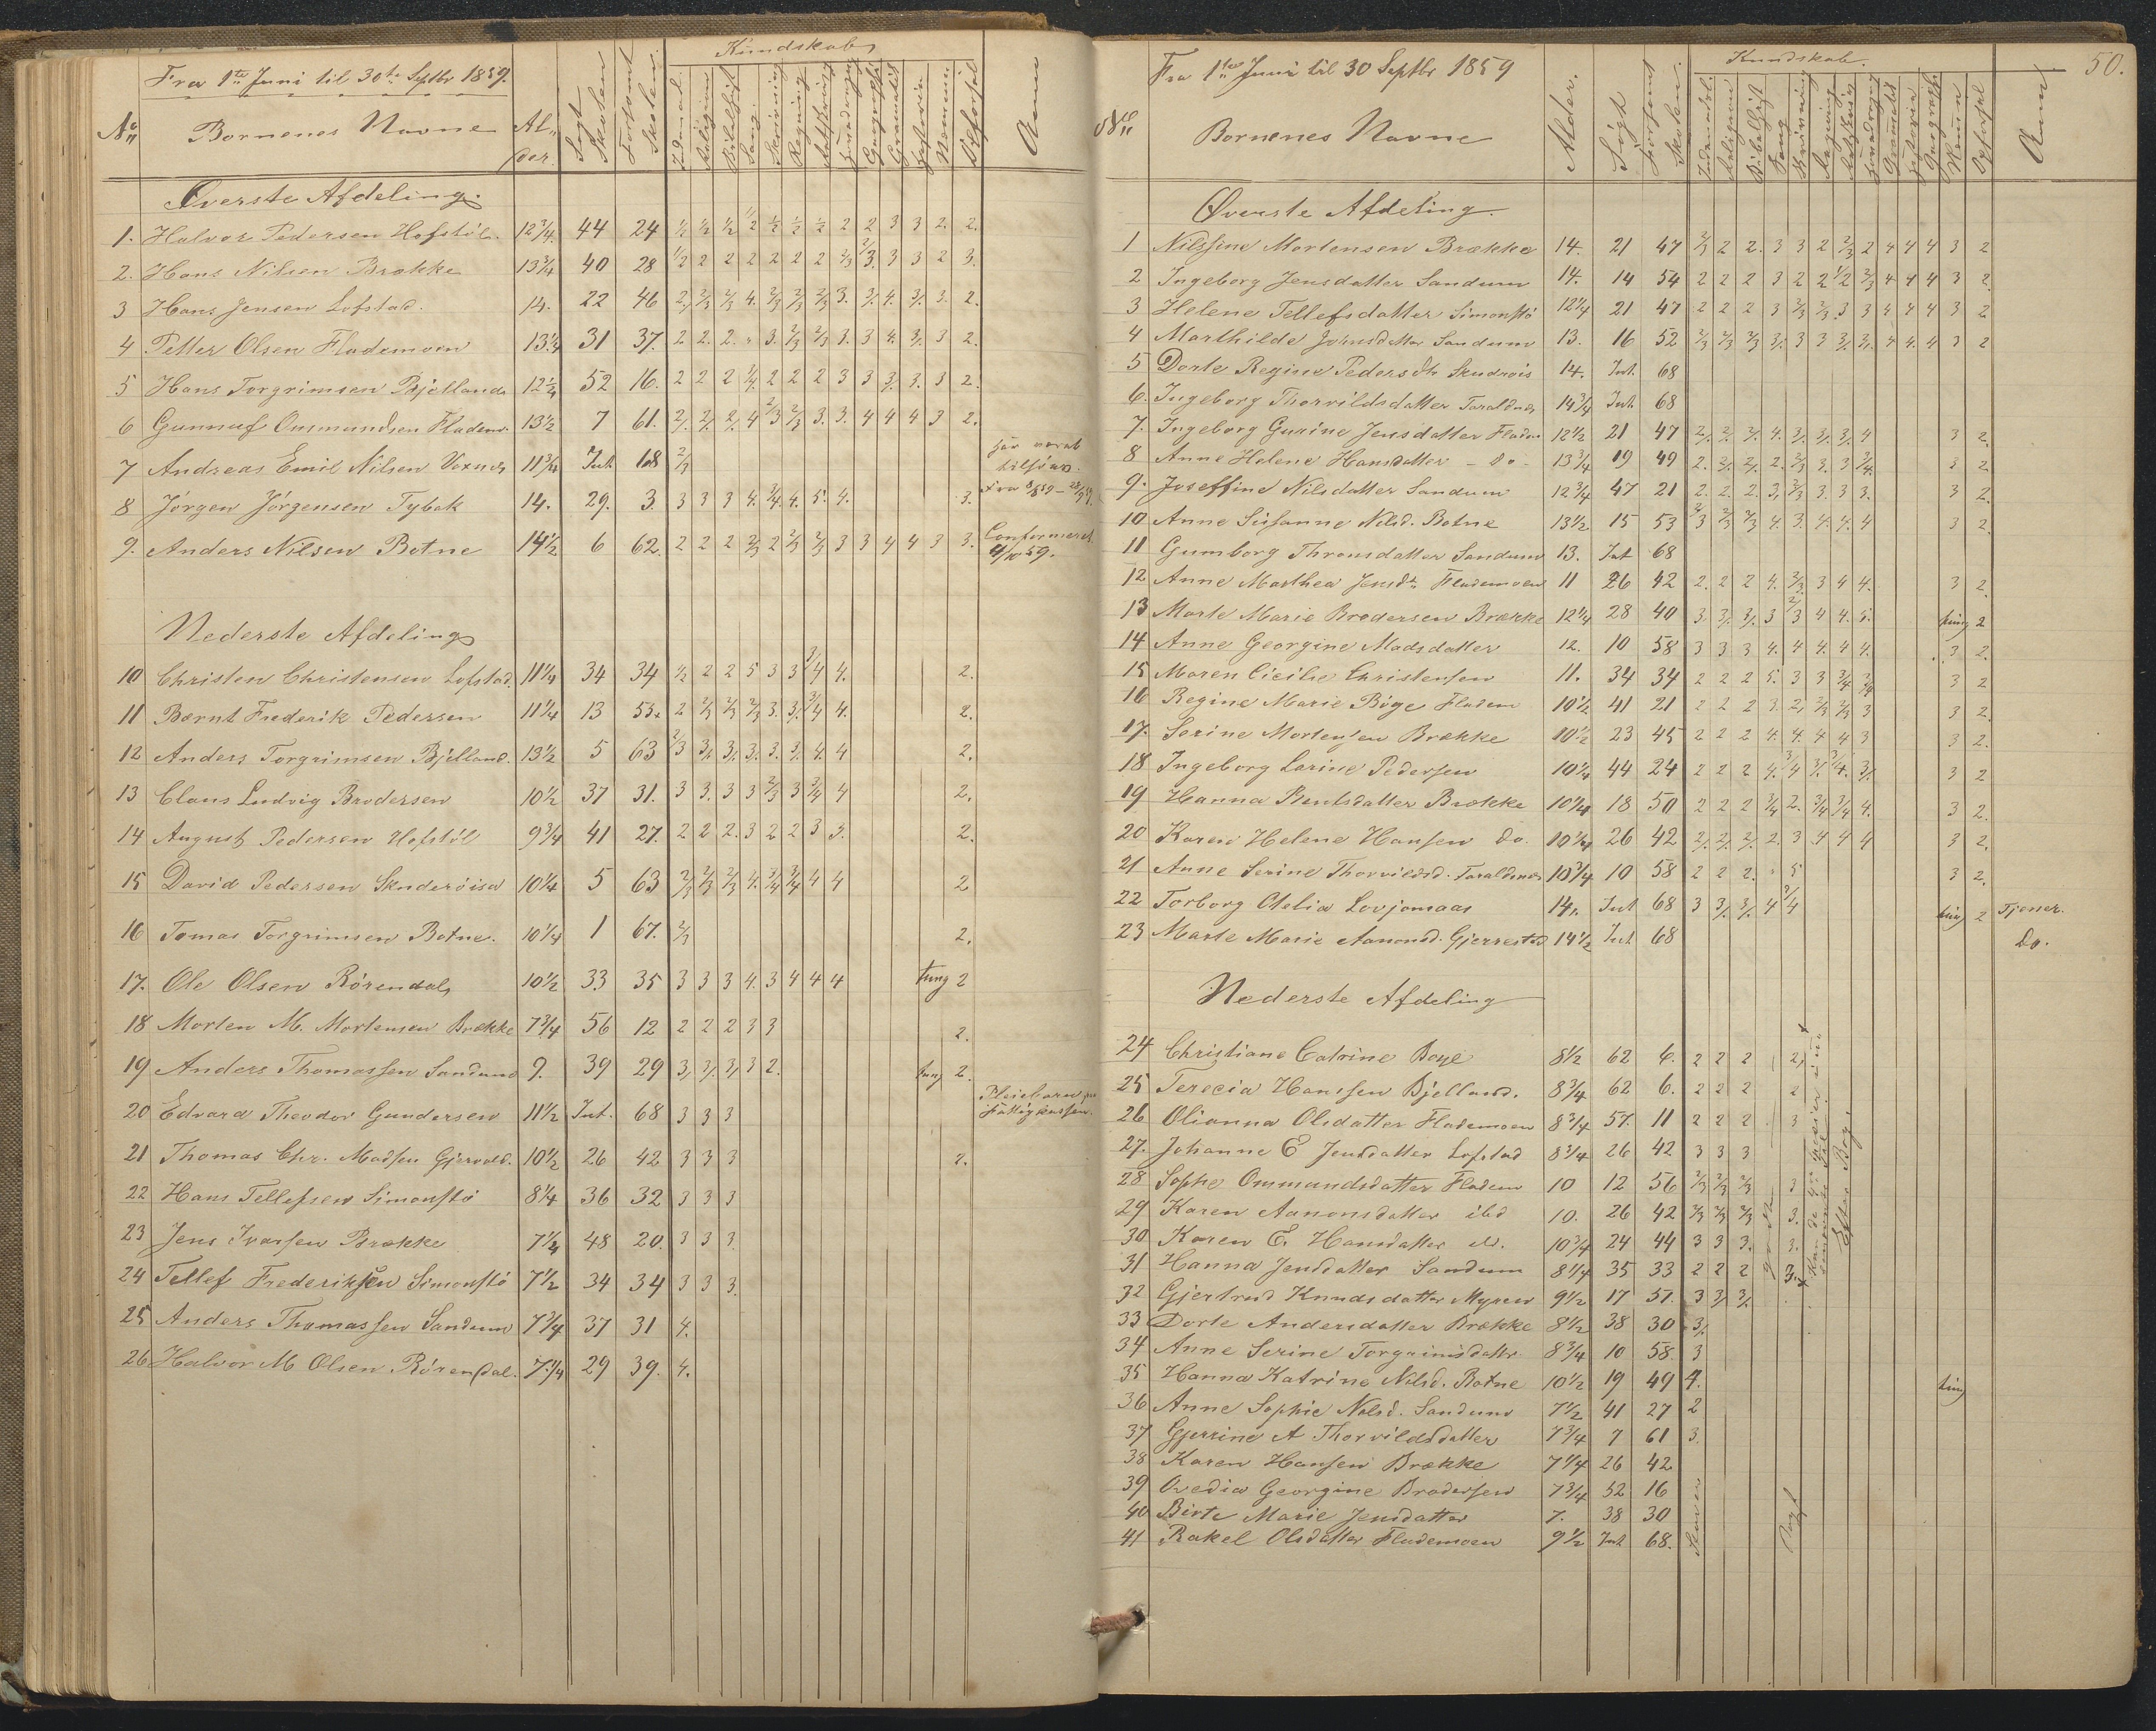 Fra 1te Juni til 30te Septbr 1859.
Kundskab
No Børnenes Navne Alder. Søgt Skolen Forsømt Skolen. Indenadl. Religion Bibelhist Sang. Skrivning Regning Retskrivning Geographi Gramatik Historie Nemme Opførsel Anm
Øverste Afdeling.
1. Halvor Pedersen Hofstøl. 12 3/4. 44 24 1/2 1/2 1/2 1/2 1/2 1/2 1/2 2 2 3 3 2. 2.
2. Hans Nilsen Brække 13 3/4 40 28 1/2 2 2 2 2 2 2 2/3 2/3. 3 3 2 3.
3 Hans Jensen Lofstad. 14. 22 46 2/. 2/3 2/3 4. 2/3 2/3 2/3 3. 3/. 4. 3/. 3. 2.
4 Petter Olsen Flademoen 13 1/4 31 37. 2 2. 2. " 3. 2/3 2/3 3. 3 4. 3/. 3 2.
5 Hans Torgrimsen Bjelland 12 1/2 52 16. 2 2 2 1/4. 2 2 2 3 3 3/. 3. 3 2.
6 Gunnuf Ommundsen Fladem. 13 1/2 7 61. 2/. 2/. 2/. 4 2/3 2/3 3. 3. 4 4 4 3 2.
7 Andreas Emil Nilsen Voxnæs 11 3/4 Int 68 2/3 har været tilsøes. Fra
8 Jørgen Jørgensen Tybak 14. 29. 3. 3 3 3 4. 3/4. 4. 5. 4. 3.
9. Anders Nilsen Botne 14 1/2 6 62. 2 2 2 2/3 2 2/3 2/3 3 3 4 4 3 3. Confirmeret 4/10 59.
Nederste Afdeling
10 Christen Christensen Lofstad. 11 1/4 34 34 1/2 2 2 5 3 3 3/4 4. 2.
11 Bernt Frederik Pedersen 11 1/4 13 55. 2 2/3 2/3 2/3 3. 3/. 3/4 4. 2.
12 Anders Torgrimsen Bjelland. 13 1/2 5 63 2/3 3/. 3/. 3/. 3. 3/. 4. 4 2.
13 Claus Ludvig Brodersen 10 1/2 37 31. 3 3. 3 3 2/3 3 3/4 4 2.
14 August Pedersen Hofstøl 9 3/4 41 27. 2 2 2. 3 2 2 3 3. 2.
15 David Pedersen Skuderøisa 10 1/4 5 63 2/3 2/3 2/3 4. 3/4 3/4 4 4 2
16 Tomas Torgrimsen Botne. 10 1/4 1 67. 2/3 2.
17. Ole Olsen Rørendal 10 1/2 33 35 3 3 3 4. 3 4 4 4 tung 2
18 Morten M. Mortensen Brække 7 3/4 56 12 2 2 2 3 3 2.
19 Anders Thomassen Sandum 9. 39 29 3/. 3/. 3/. 3 2. tung 2.
20 Edvard Theodor Gundersen 11 1/2 Int. 68 3 3 3 Pleiebarn fattigkassen.
21 Thomas Chr. Madsen Gjervold. 10 1/2 26 42 3 3 3 2.
22 Hans Tellefsen Simonstø 8 1/4 36 32 3 3 3
23 Jens Ivarsen Brække 7 1/4 48 20. 3 3 3.
24 Tellef Frederiksen Simonstø 7 1/2 34 34 3 3 3.
25 Anders Thomassen Sandum 7 3/4 37 31 4.
26 Halvor M Olsen Rørendal. 7 1/4 29 39. 4.
50.
Fra 1te Juni til 30 Septbr 1859
Kundskab.
No Børnenes Navne Alder. Søgt Forsømt Skolen. Indenadl. Religion Bibelhist Sang Skrivning Regning Retskrivning Gramatik Historie Geograph. Nemme Opførsel Anm
Øverste Afdeling.
1 Nilssine Mortensen Brække 14. 21 47 2/3 2 2. 3 3 2 2/3 2 4 4 4 3 2
2 Ingeborg Jensdatter Sandum 14. 14 54 2 2 2 3 2 2 1/2 2/3 4 4 4 3 2.
3 Helene Tellefsdatter Simonstø 12 1/4 21 47 2 2 2 3 2/3 2/3 3 3 4 4 4 3 2
4 Marthilde Johnsdatter Sandum 13. 16 52 2/3 2/3 2/3 3/. 3 3 3/. 3/. 4 4. 4 3 2
5 Dorte Regine Pedersdtr Skudrøis 14. Int. 68
6. Ingeborg Thorvildsdatter Taraldnes 14 3/4 Int. 68
7. Ingeborg Gurine Jensdatter Fladem 12 1/2 21 47 2/. 2/. 3/. 4. 3/. 3/. 3/. 4 3 2.
8 Anne Helene Hansdatter - do - 13 3/4 19 49 2. 2/. 2/. 2. 2/3 3. 3 3/4. 3 2
9. Joseffine Nilsdatter Sandum 12 3/4 47 21 2. 2. 2. 3. 2/3 3. 3 3. 3 2.
10 Anne Susanne Nilsd. Botne 13 1/2 15 53 2/3 2/3 2/3 4. 3. 4. 4. 4 3 2.
11 Gumborg Thronsdatter Sandum 13. Int 68
12 Anne Marthea Jensdtr Flademoen 11 26 42 2. 2 2 4. 2/3 3 4 4. 3 2.
13 Marte Marie Brodersen Brække 12 1/4 28 40 3. 3/. 3/. 3 2/3 4 4. 5. tung 2
14 Anne Georgine Madsdatter 12. 10 58 3 3 3 4. 4 4. 4 4. 3 2.
15 Maren Cicilie Christensen 11. 34 34 2 2 2 5. 3 3 3/4 3/4 3 2
16 Regine Marie Bøge Fladem 10 1/2 41 21 2 2 2 3. 2/. 2/3 2/3 3 3 2.
17. Serine Mortensen Brække 10 1/2 23 45 2 2 2 4. 4. 4 4 3 3 2.
18 Ingeborg Larine Pedersen 10 1/4 44 24 2 2 2 4. 3/4 3/. 3/4. 3/. 3 2
19 Hanna Berntsdatter Brække 10 1/4 18 50 2 2 2 3/4 2. 3/4 3/4 4. 3 2.
20 Karen Helene Hansen do. 10 1/4 26 42 2/. 2/. 2/. 2. 3 4 4 4 3 2.
21 Anne Serine Thorvildsd. Taraldnes 10 3/4 10 58 2 2 2. " 5 3 2.
22 Torborg Otelia Lovjomaas 14. Int 68 3 3/. 3/. 4 3/4 tung 2 Tjener.
23 Marte Marie Aanonsd. Gjerrestad 14 1/2 Int 68 Do.
Nederste Afdeling
24 Christiane Catrine Boye 8 1/2 62 6. 2 2 2 2/.
25 Terecia Hansen Bjelland. 8 3/4 62 6. 2 2 2 2
26 Olianna Olsdatter Flademoen 8 3/4 57. 11 2 2 2 3
27. Johanne E Jensdatter Lofstad 8 3/4 26 42 3 3 3
28 Sophe Ommundsdatter Fladem 10 12 56 2/3 2/3 2/3 3
29 Karen Aanonsdatter ibd 10. 26 42 2/3 2/3 2/3 3.
30. Karen E. Hansdatter ibd. 10 3/4 24 44 3 3 3. 3.
31 Hanna Jensdatter Sandum 8 1/4 35 33 2 2 2 3.
32 Gjertrud Knudsdatter Myren 9 1/2 17 51. 3 3/. 3/.
33 Dorte Andersdatter Brække 8 1/2 38 30 3/.
34 Anne Serine Torgrimsdatter 8 3/4 10 58. 3
35 Hanna Katrine Nilsd. Botne 10 1/2 19 49 4. tung
36 Anne Sophie Nilsd. Sandum 7 1/2 41 27 2
37 Gjerrine A Thorvildsdatter 7 3/4 7 61 3.
38 Karen Hansen Brække 7 1/4 26 42
39 Ovedia Georgine Brodersen 7 3/4 52 16
40 Birte Marie Jensdatter 7. 38 30
41 Rakel Olsdatter Flademoen 9 1/2 Int 68.
Efter Bog.